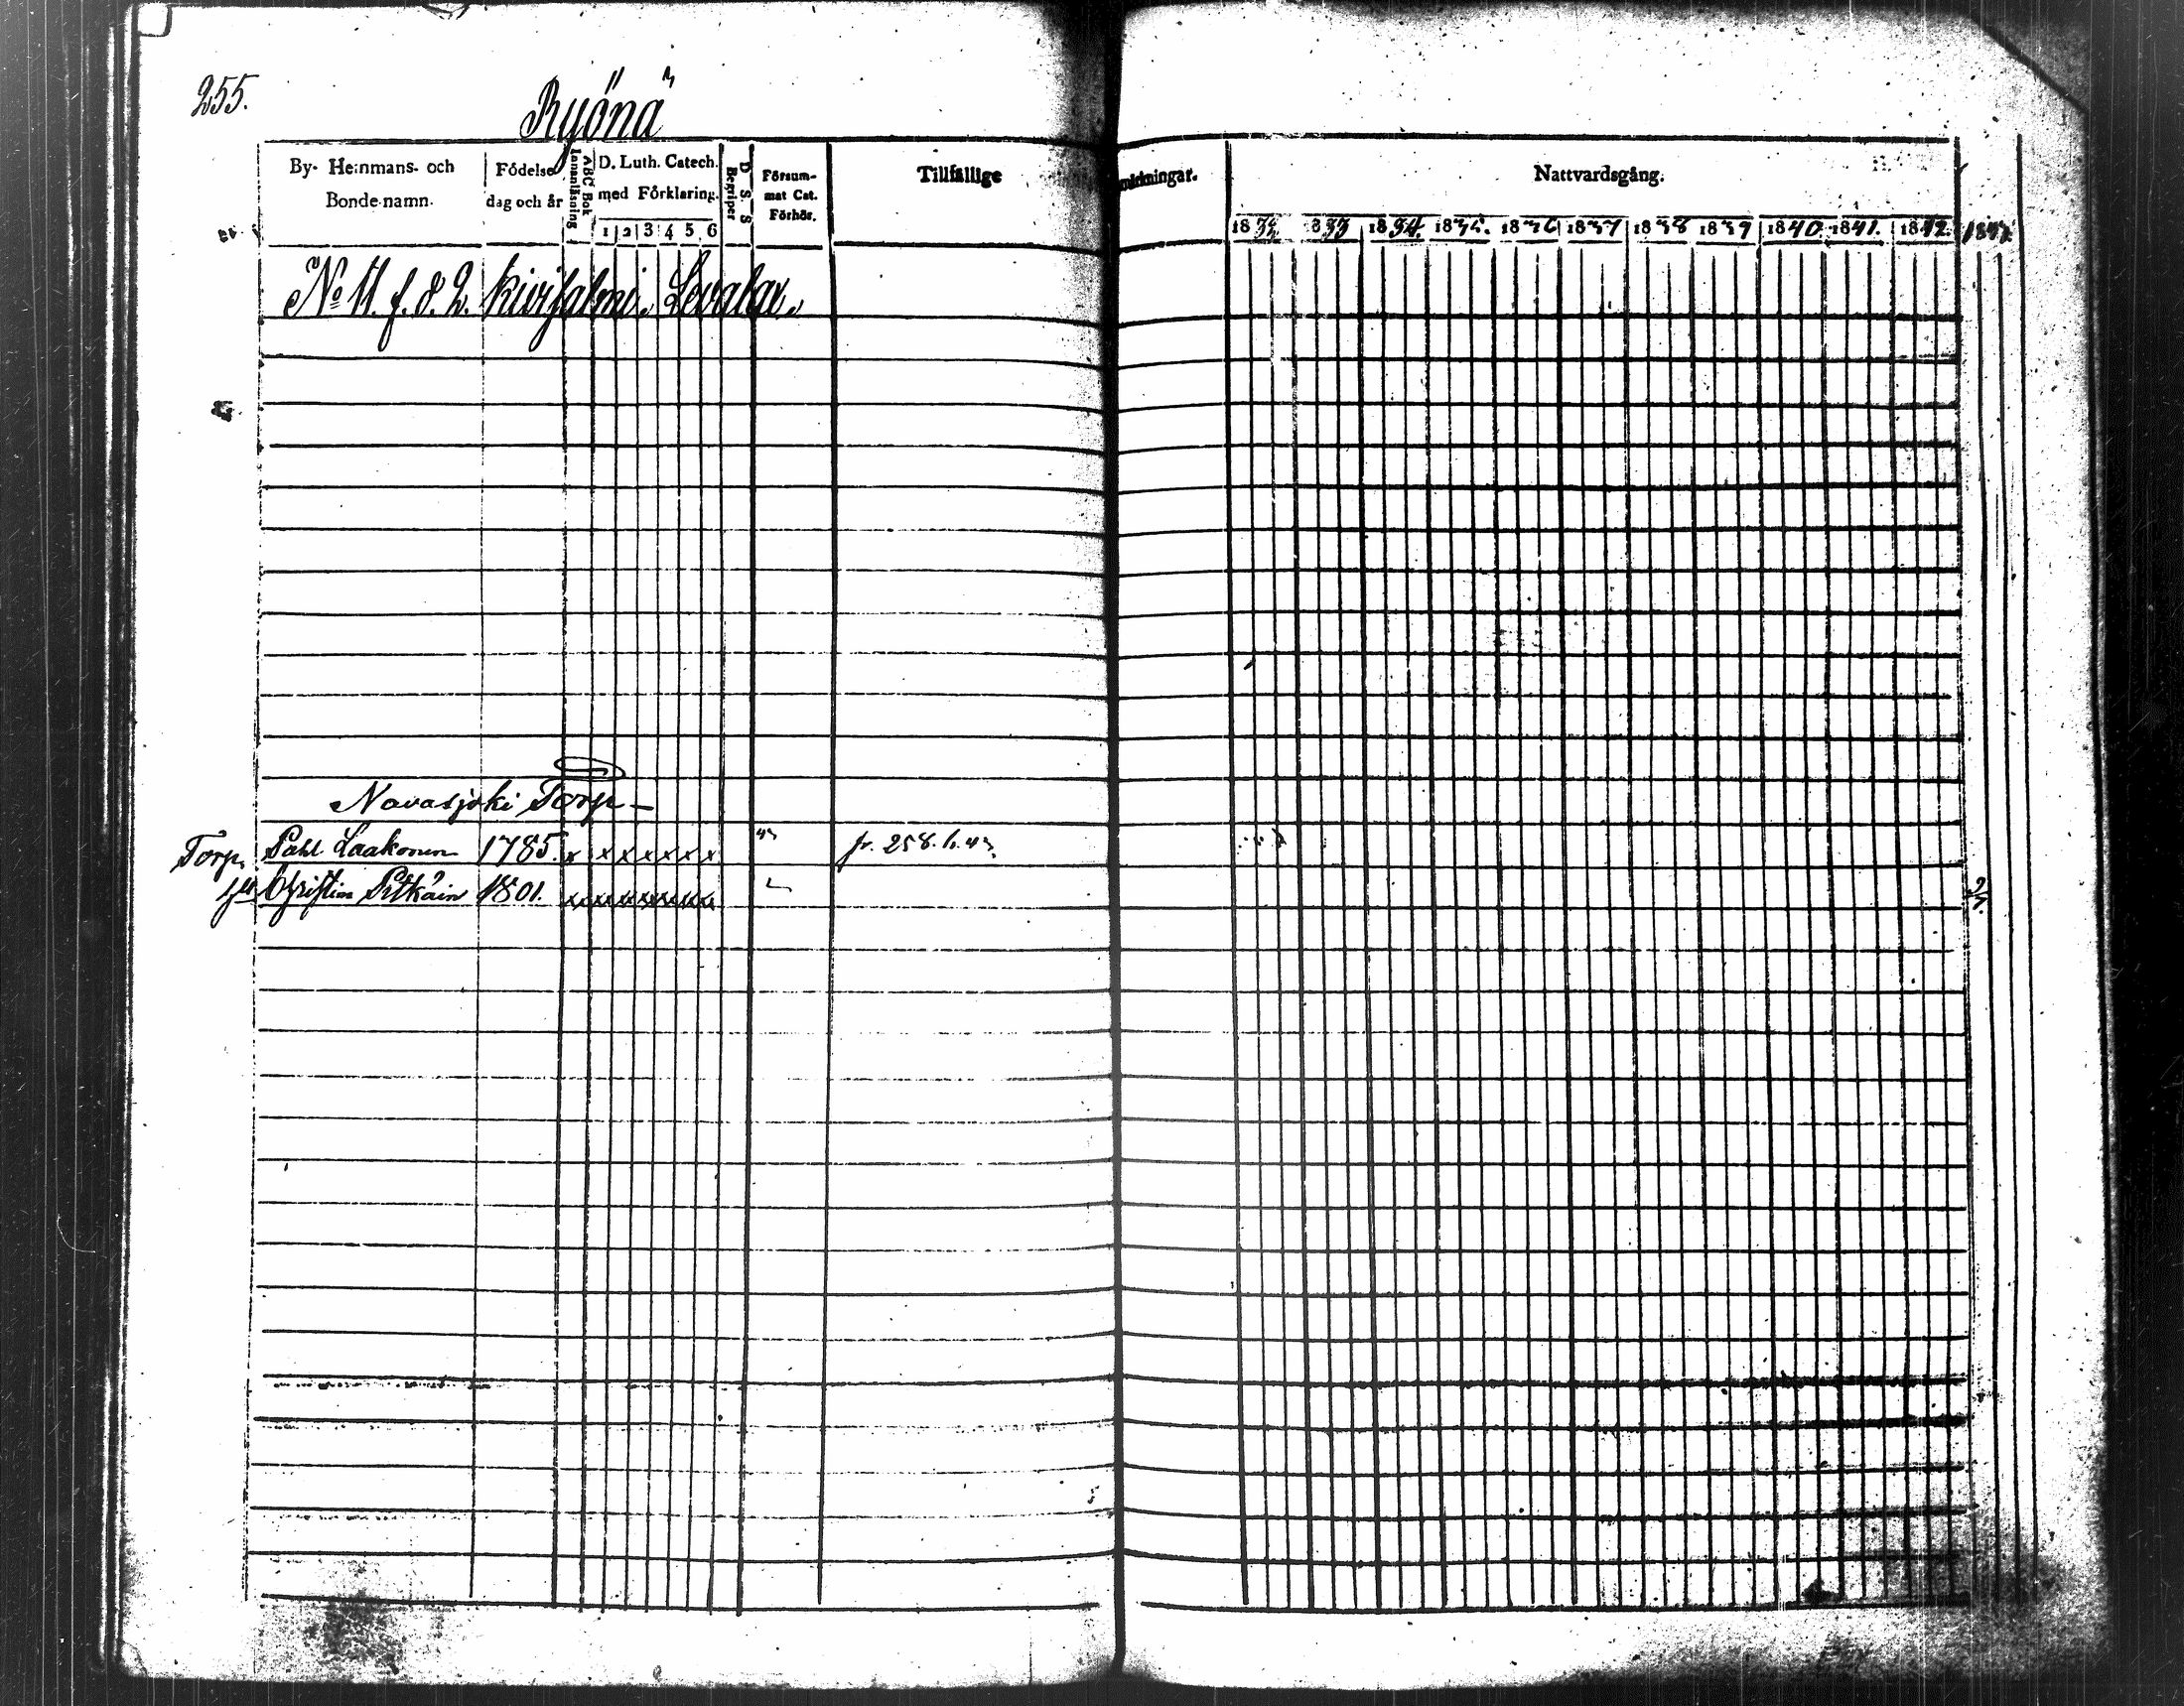 255.
Ryönä
By- Hemmans- och Bonde-namn.
Födelse dag och år
ABC Bok Innanläsning
D. Luth. Catech. med Förklaring.
1 2 3 4 5 6
D. S. S Begriper
Försum- mat Cat. Förhör.
Tillfällige
märkningar.
Nattvardsgång.
1832 1833 1834 1835. 1836 1837 1838 1839 1840 1841. 1842. 1843
No 11. f. d. 2. Kivisalmi.
Navasjoki Torp
Torp. Påhl Laakonen 1785. x x x x x x x 43 fr. 258. b. 43
Christin Pitkäin 1801.